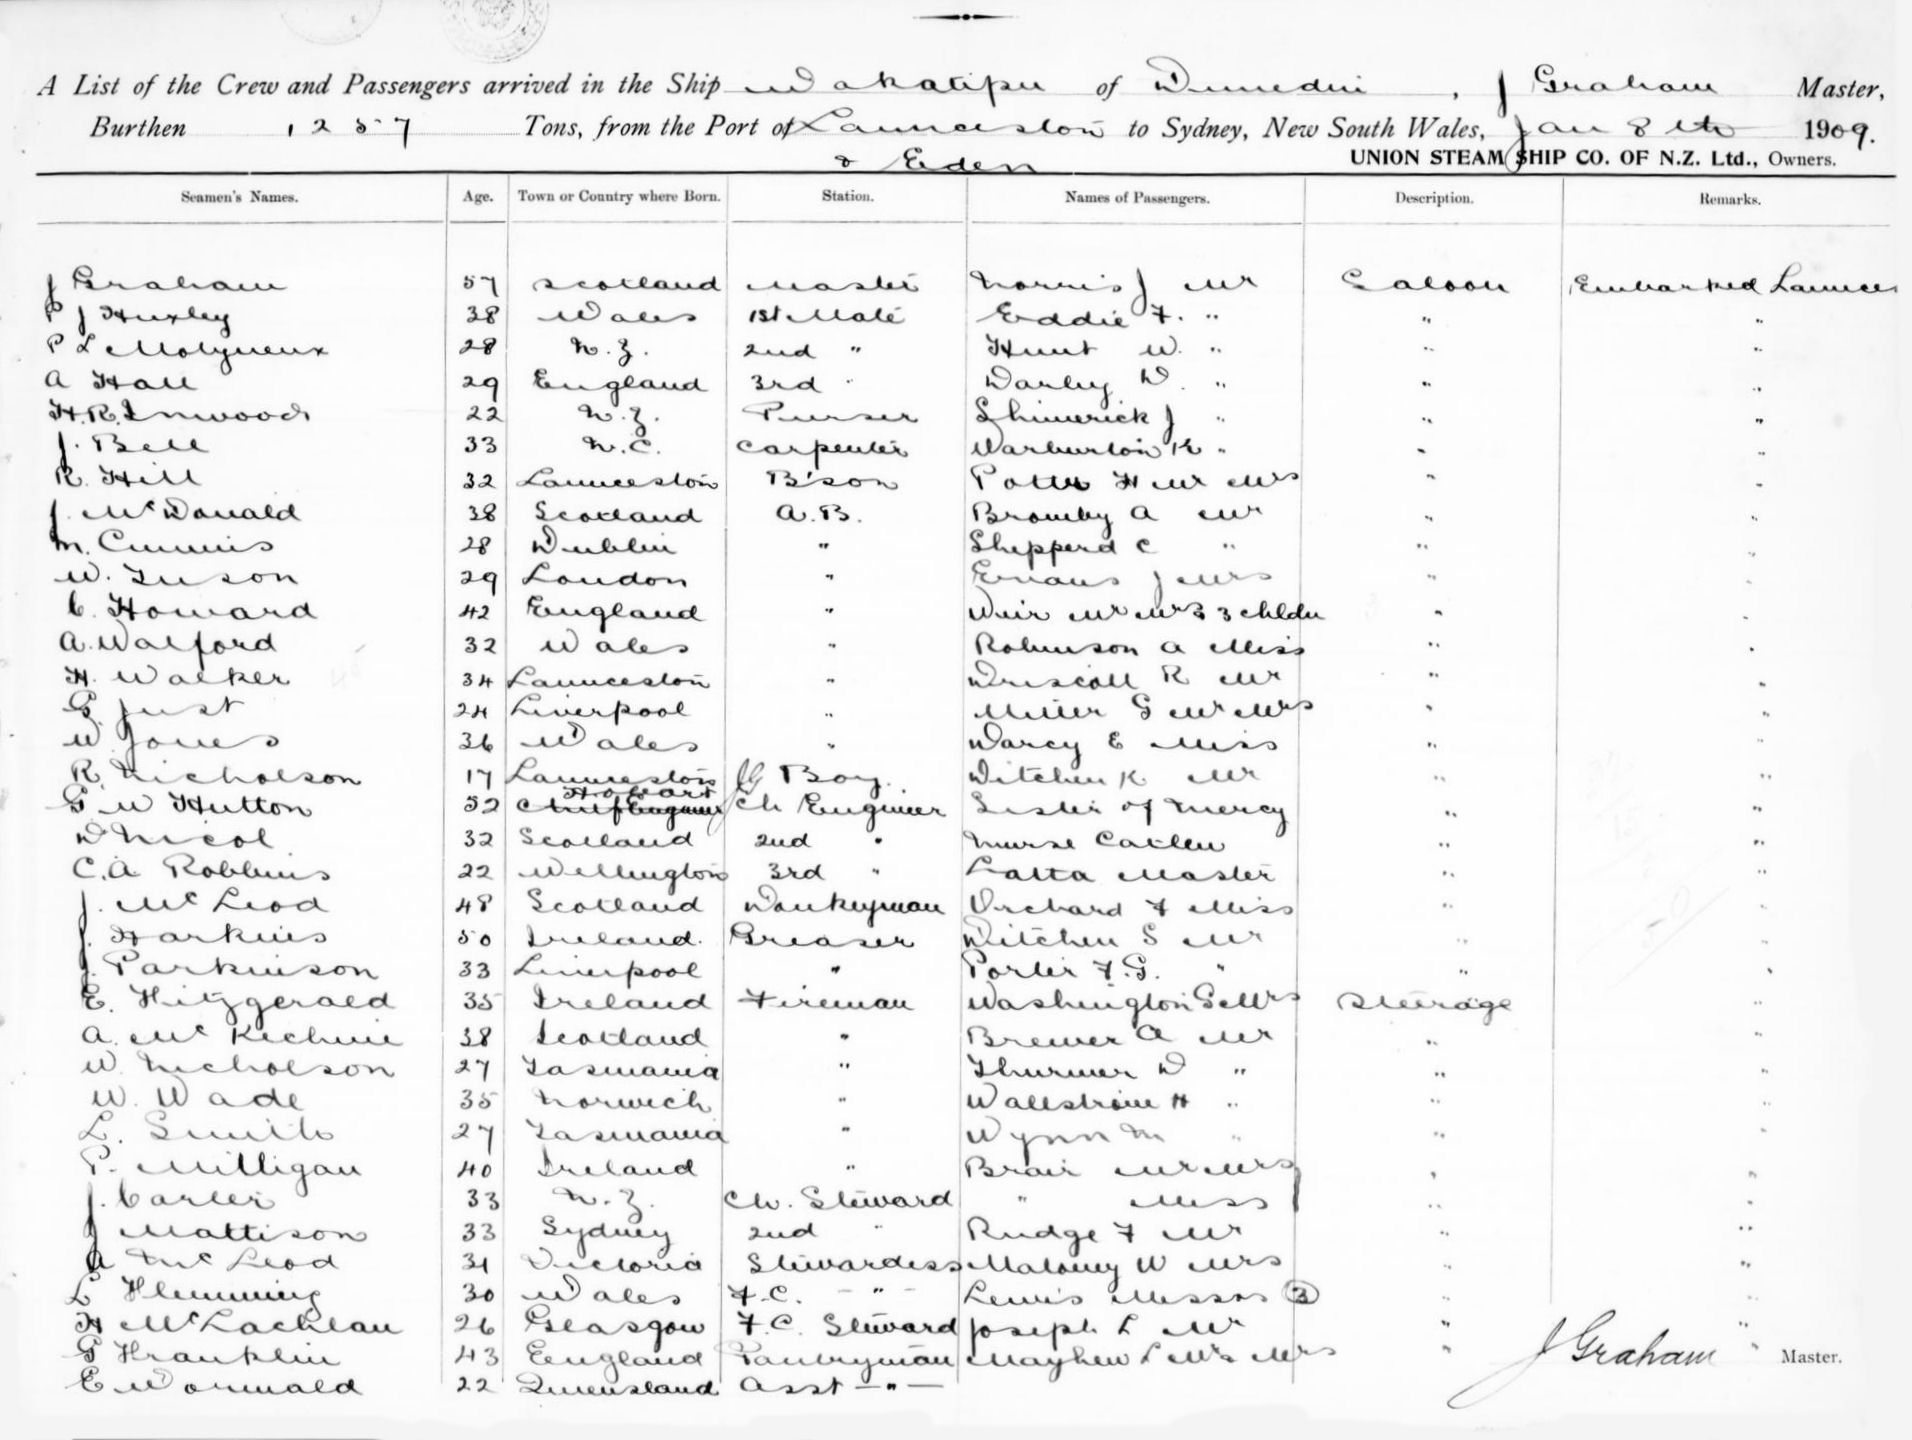 A List of the Crew and Passengers arrived in the Ship Wakatipu of Dunedin, J Graham Master,
Burthen 1257 Tons, from the Port of Launceston to Sydney, New South Wales, Jan 8th 1909.
& Eden UNION STEAM SHIP CO. OF N.Z. Ltd., Owners.
Seamen's Names. Age. Town or Country where Born. Station. Names of Passengers. Description. Remarks.
J Graham 57 Scotland Master Norris J Mr Saloon Embarked Launces
P J Huxley 38 Wales 1st Mate Eddie F. " " "
P L Molyneux 28 N.Z. 2nd " Hunt W. " " "
A Hall 29 England 3rd " Darley W. " " "
H.R. Inwood 22 N.Z. Purser Shimerick J " " "
J. Bell 33 N.C. Carpenter Warburton K " " "
R. Hill 32 Launceston B'son Potter H Mr Mrs " "
J. McDonald 38 Scotland A.B. Bromby A Mr " "
M. Cummis 28 Dublin " Shepperd C " " "
W. Tuson 29 London " Evans J Mrs " "
C. Howard 42 England " Weir Mr Mrs & 3 chldn " "
A. Walford 32 Wales " Robinson A Miss " "
H. Walker 34 Launceston " Driscoll R Mr " "
G. Just 24 Liverpool " Miller G Mr Mrs " "
W. Jones 36 Wales " Darcy E Miss " "
R. Nicholson 17 Launceston JG Boy. Witchen K Mr " "
G W Hutton 52 Chief Engineer Hobart Ch Engineer Sister of Mercy " "
D Nicol 32 Scotland 2nd " Nurse " "
C.A Robbins 22 Wellington 3rd " Latta Master " "
J. McLeod 48 Scotland Donkeyman Orchard F Miss " "
J. Harkins 50 Ireland. Greaser Witchen S Mr " "
J. Parkinson 33 Liverpool " Porter F.G. " " "
E. Fitzgerald 35 Ireland Fireman Washington G Mrs Steerage "
A. McKechnie 38 Scotland " Brewer A Mr " "
W. Nicholson 27 Tasmania " Thurmer W " " "
W. Wade 35 Norwich " Wallstrom H " " "
L. Smith 27 Tasmania " Wynn M " " "
P. Milligan 40 Ireland " Brair Mr Mrs " "
J. Carter 33 N.Z. Ch. Steward " Miss " "
J Mattison 33 Sydney 2nd " Rudge F Mr " "
A McLeod 31 Victoria Stewardess Maloney W Mrs " "
L Flemming 30 Wales F.C. - " - Lewis Messrs (3) " "
H McLachlan 26 Glasgow F.C. Steward Joseph L Mr " "
G Franklin 43 England Pantryman Mayhew L Mr Mrs " " J Graham Master.
E Wormald 22 Queensland Asst — " —